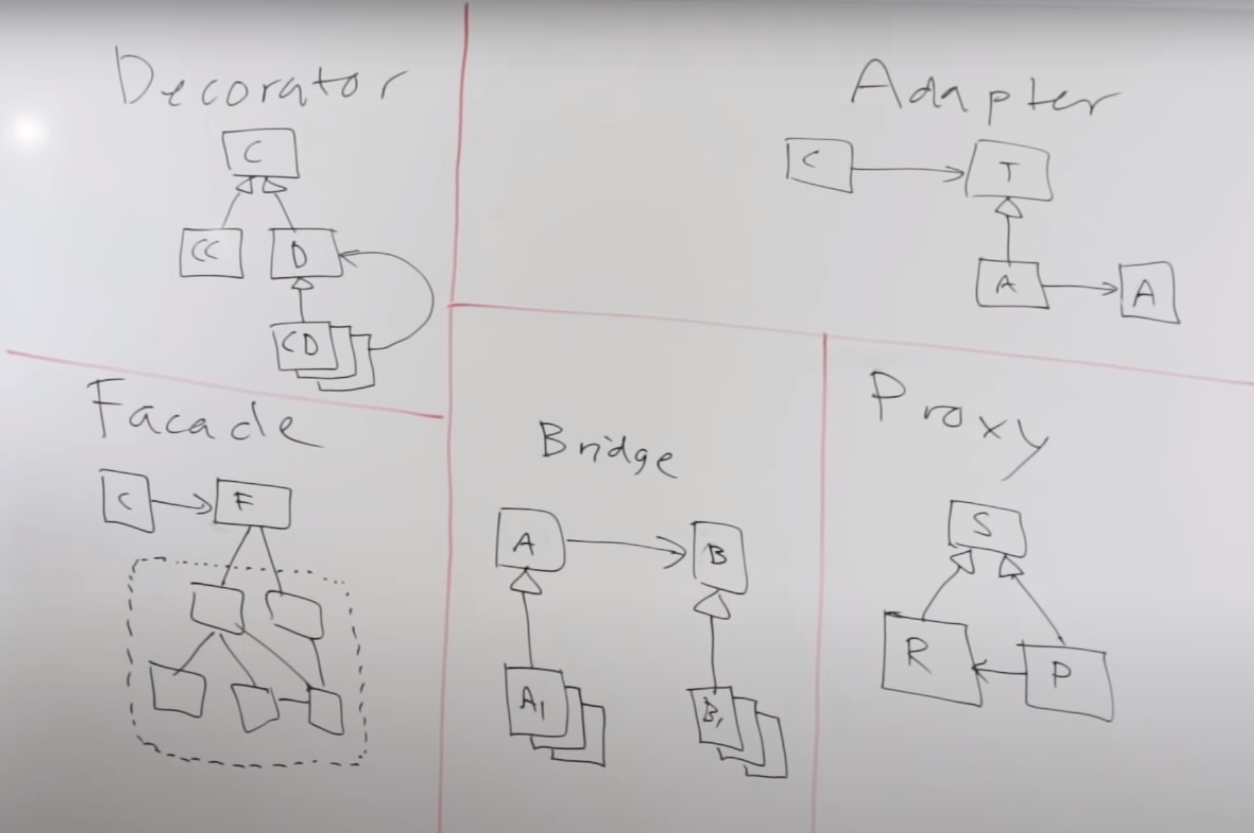 Decorator
C
CC
D
CD
Adapter
C
T
A
A
Facade
C
F
Bridge
A
B
A1
B1
Proxy
S
R
P